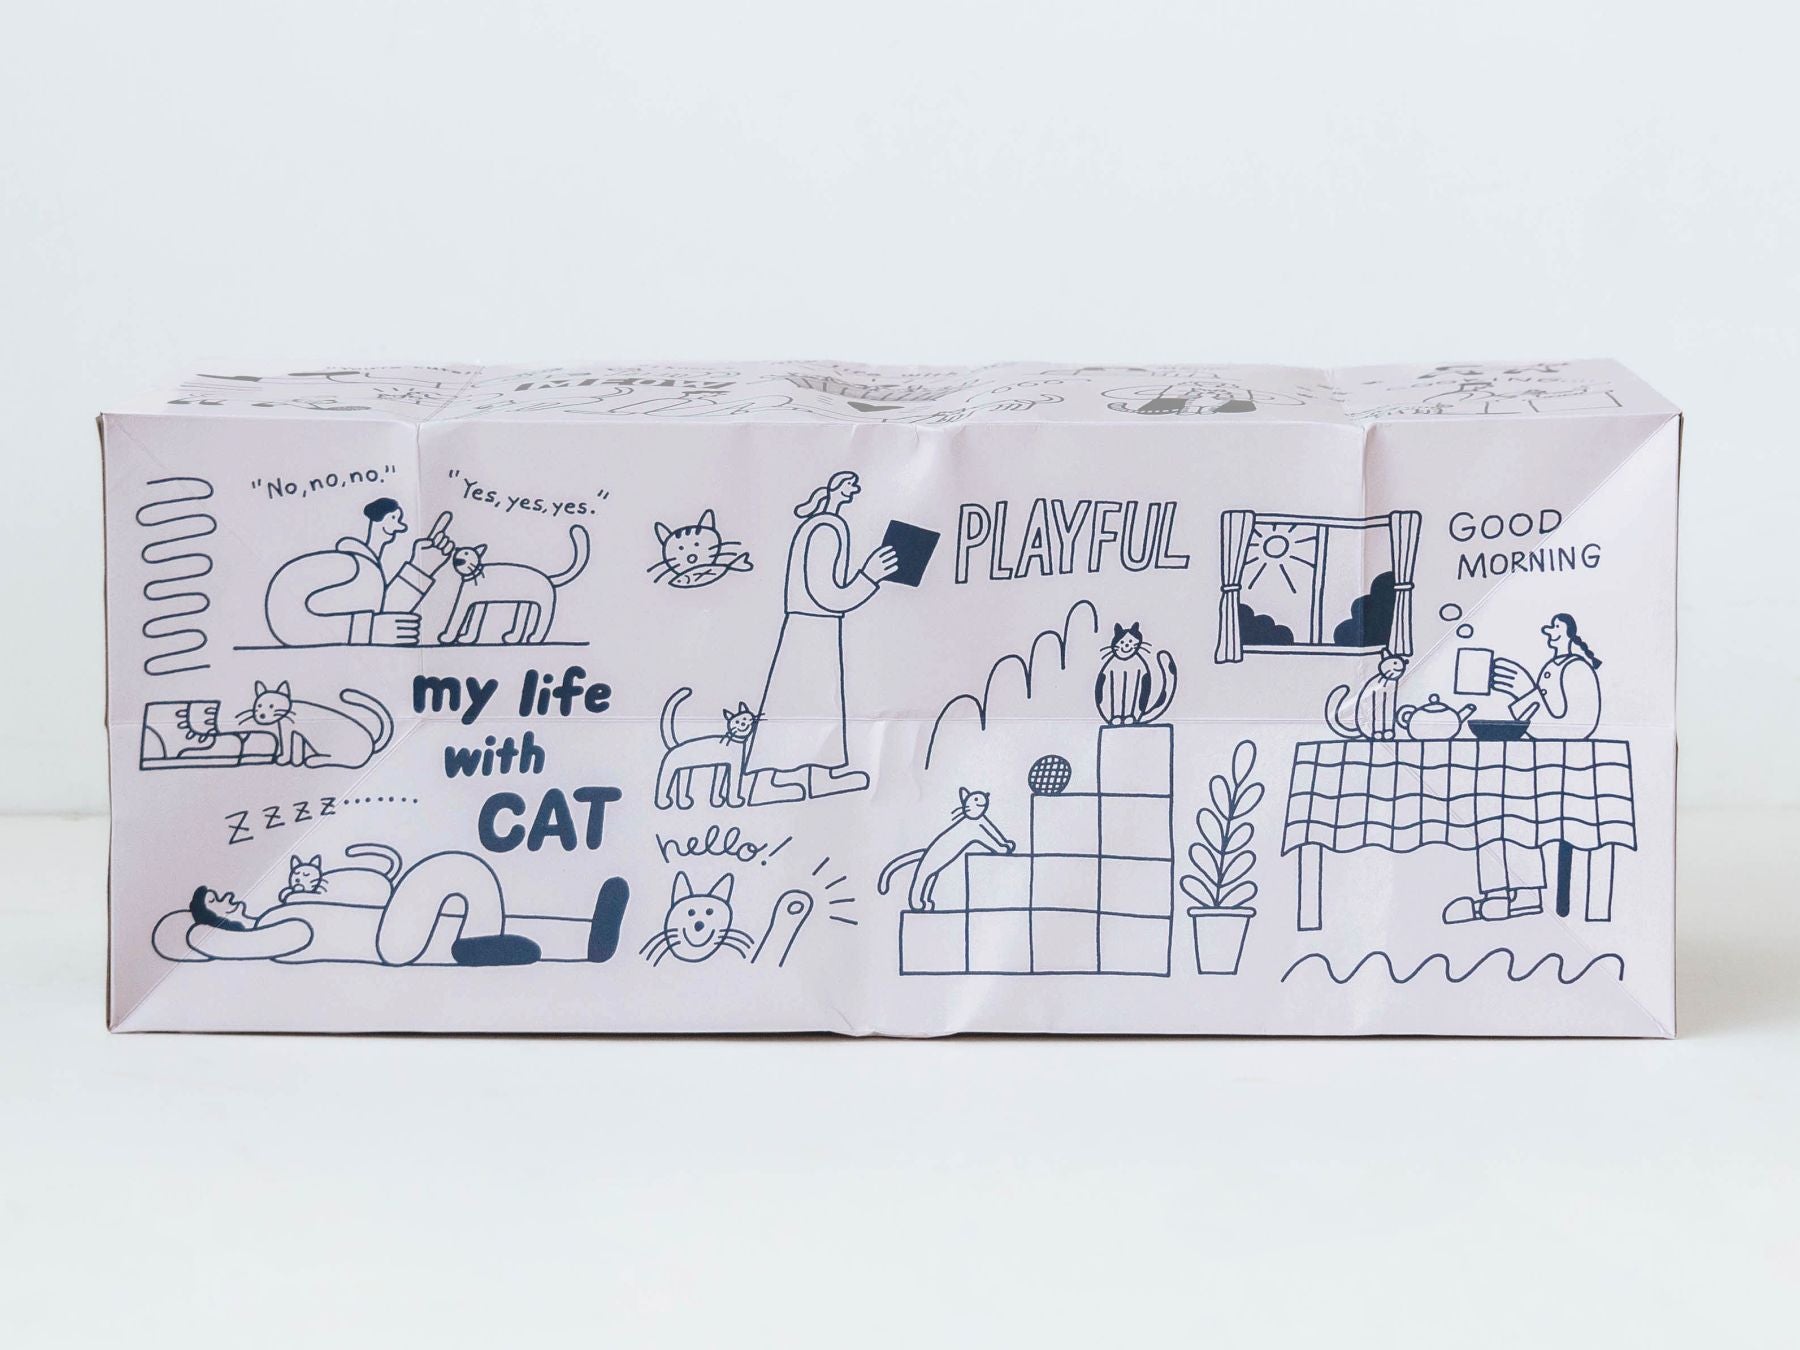 "No, no, no."
"Yes, yes, yes."
my life
with
CAT
zzzz........
hello!
PLAYFUL
GOOD
MORNING